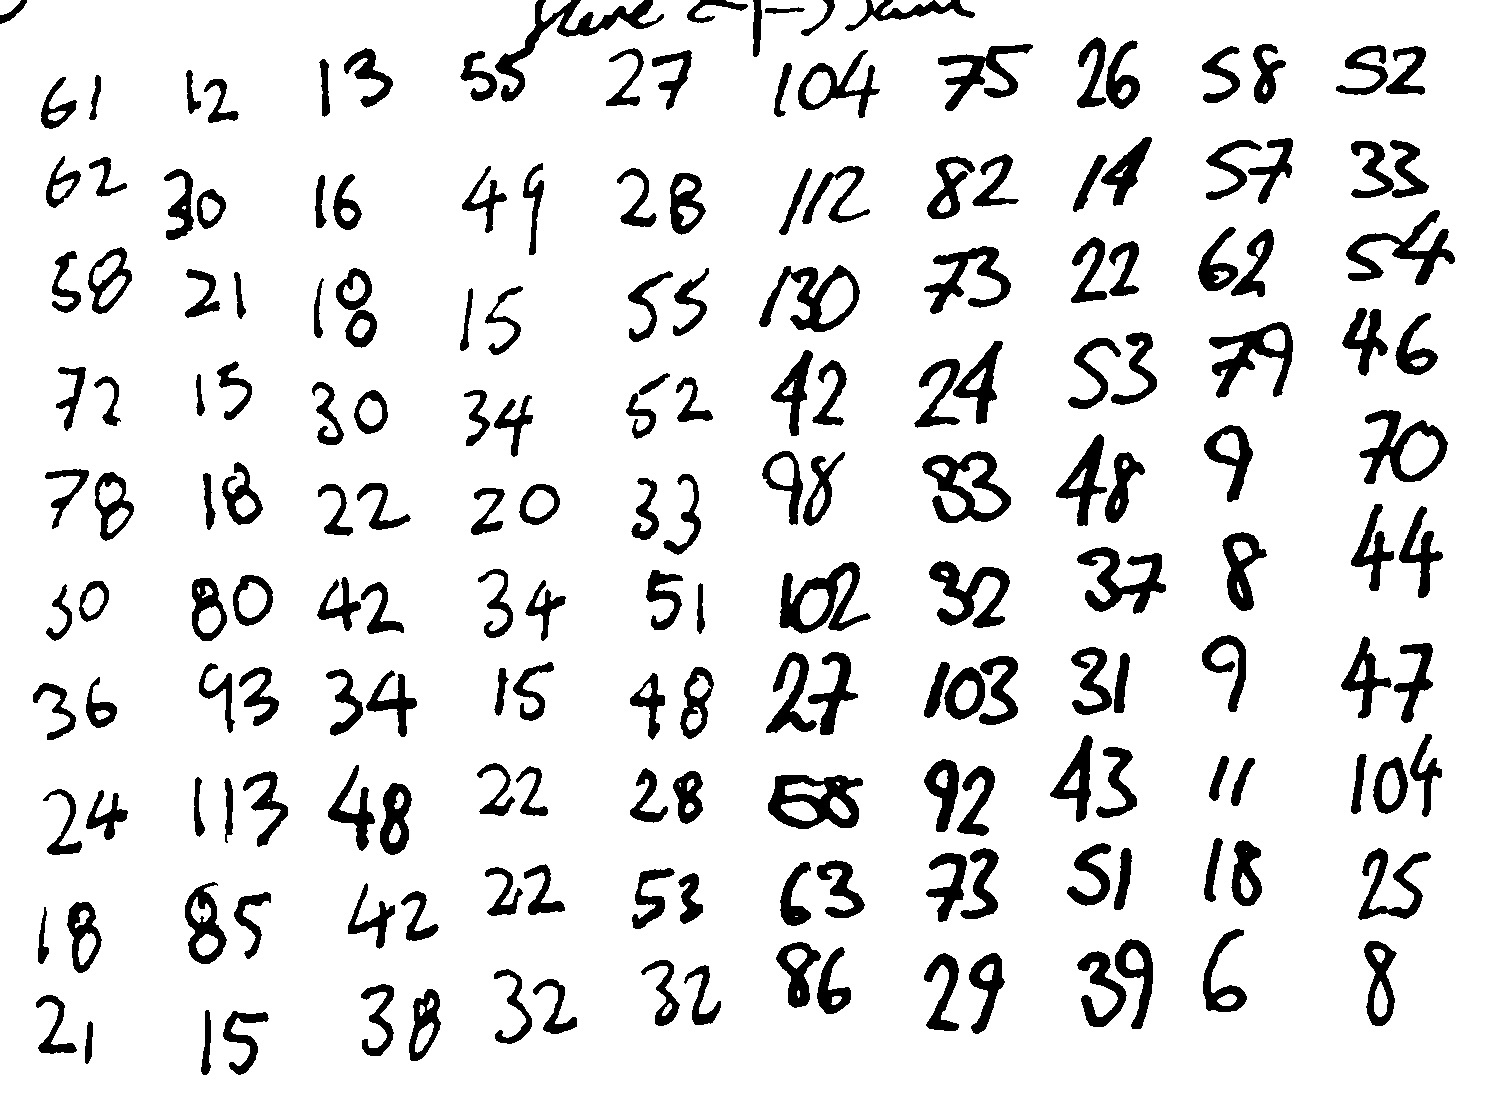 61 12 13 55 27 104 75 26 58 52
62 30 16 49 28 112 82 14 57 33
58 21 18 15 55 130 73 22 62 54
72 15 30 34 52 42 24 53 79 46
78 18 22 20 33 98 83 48 9 70
30 80 42 34 51 102 32 37 8 44
36 93 34 15 48 27 103 31 9 47
24 113 48 22 28 58 92 43 11 104
18 85 42 22 53 63 73 51 18 25
21 15 38 32 32 86 29 39 6 8